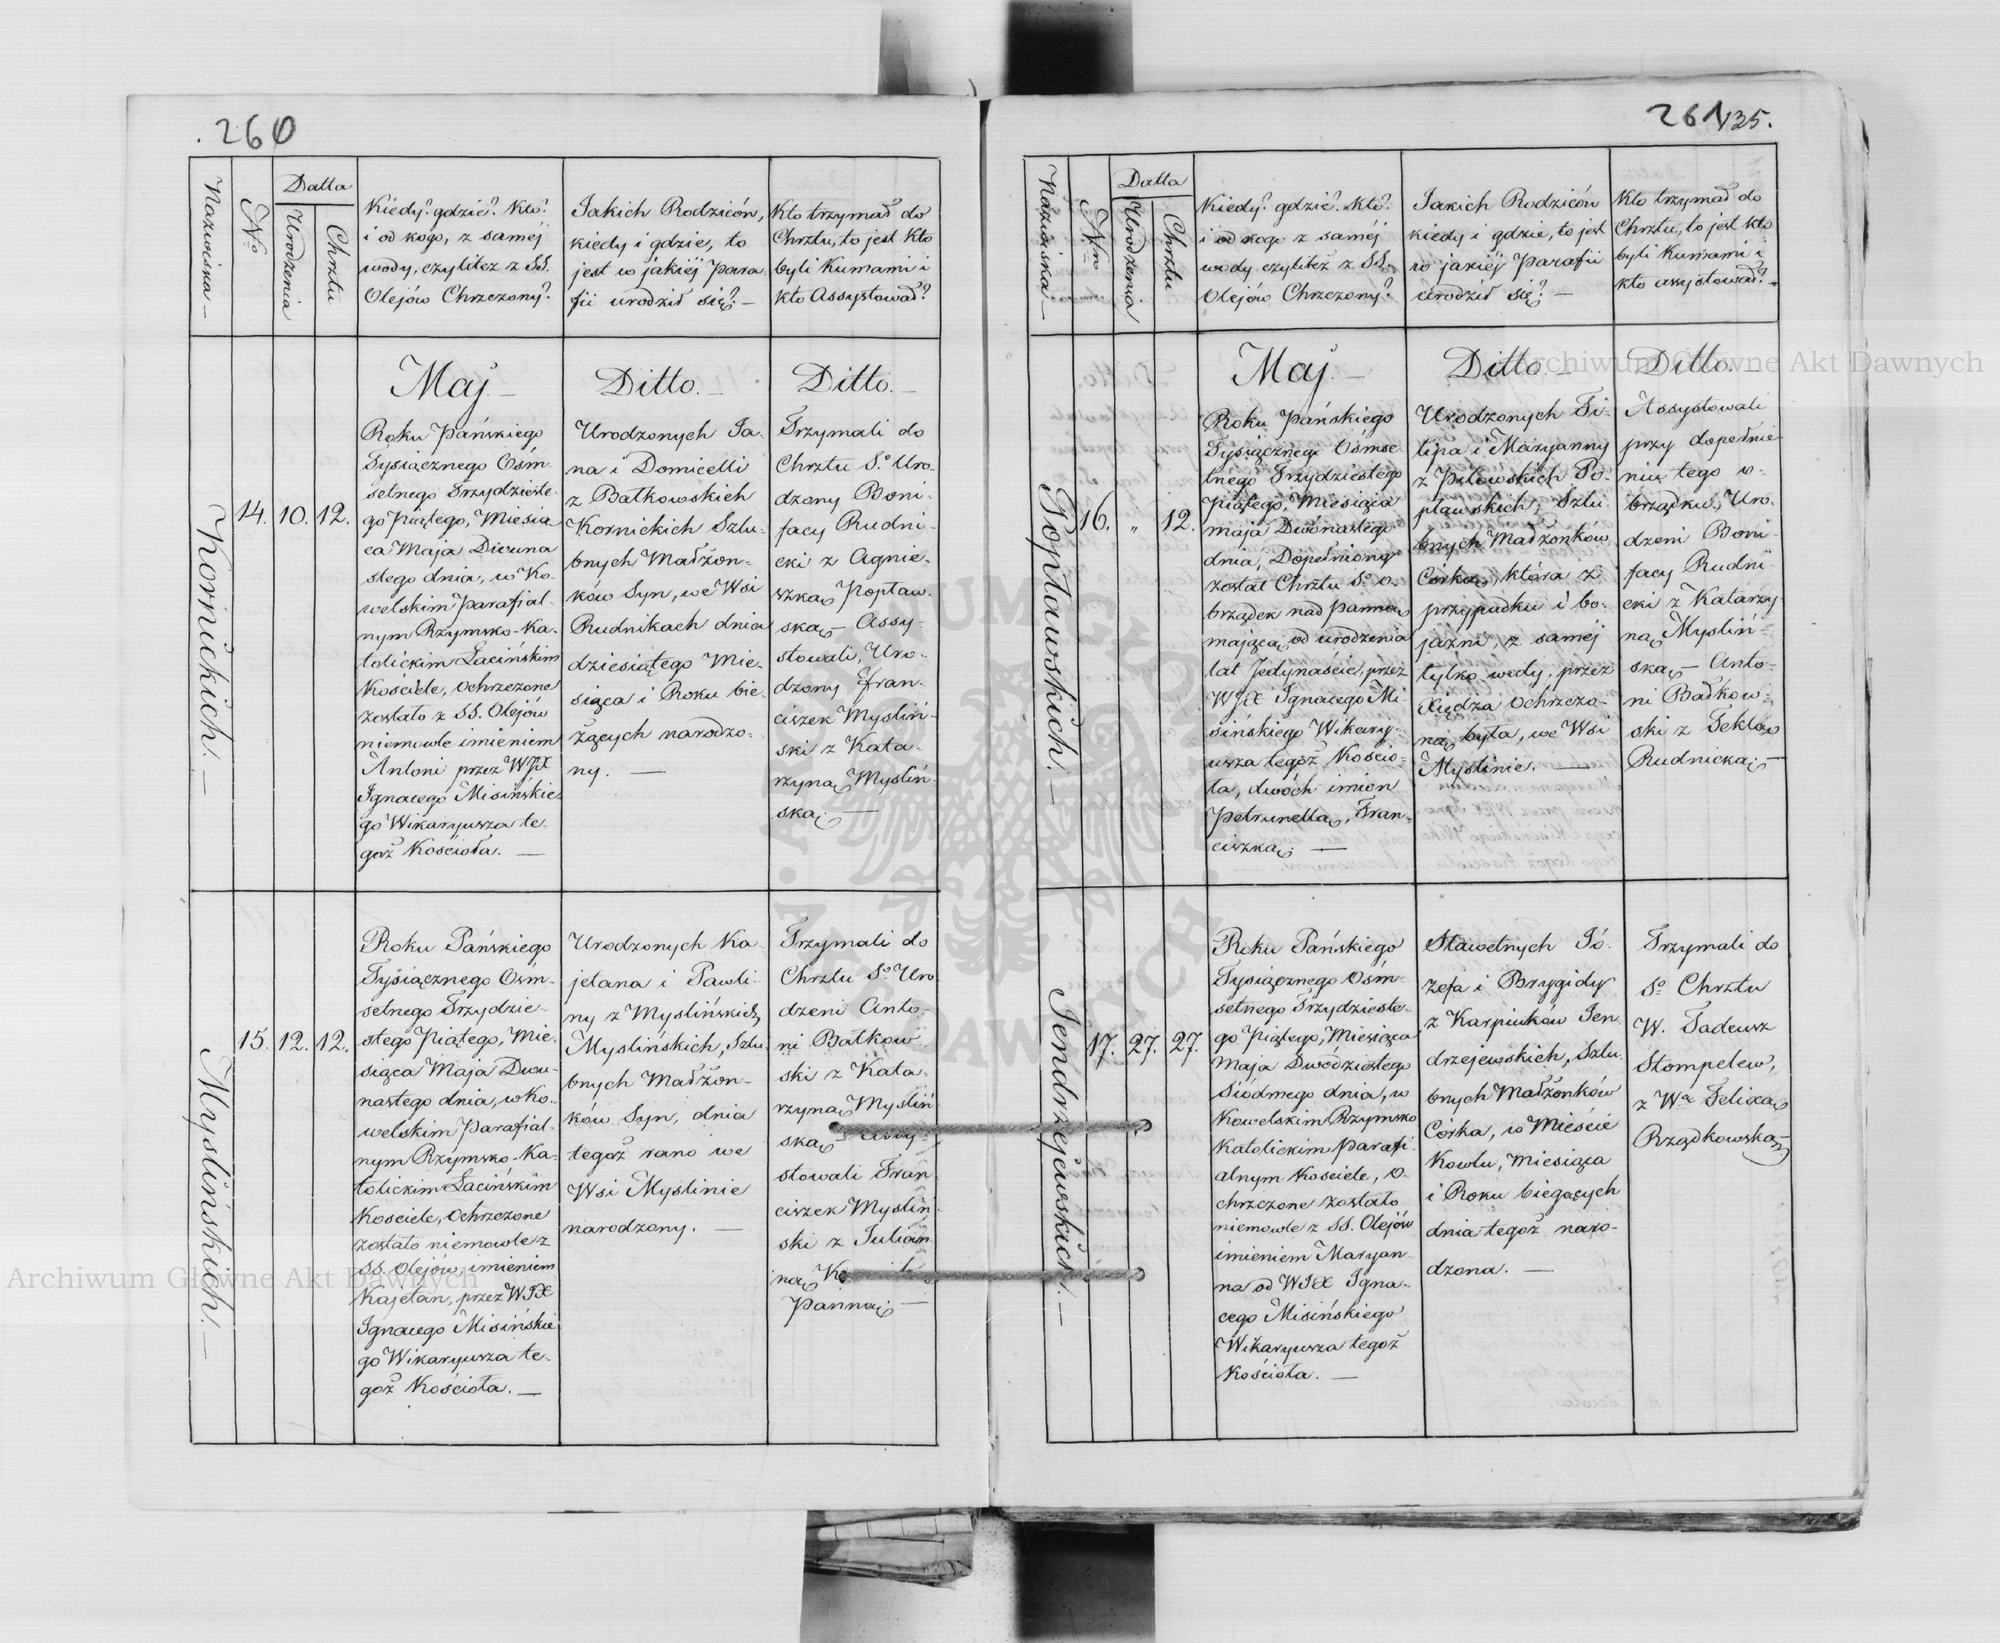 .260
Nazwiska —
No
Datta
Urodzenia
Chrztu
Kiedy? gdzie? Kto?
i od kogo, z saméj
wody, czylitez z SS.
Olejów Chrzczony?
Jakich Rodziców,
kiedy i gdzie, to
jest w jakiéj Para-
fii urodził się? —
Kto trzymał do
Chrztu, to jest kto
byli Kumami i
kto Assystował?
Maj. —
Ditto. —
Ditto. —
Kornickich. —
14.
10.
12.
Roku Pańskiego
Tysiącznego Ośm-
setnego Trzydzieste-
go Piątego, Miesia
ca Maja Dwuna
stego dnia, w Ko-
welskim Parafial-
nym Rzymsko-Ka-
tolickim Łacińskim
Kościele, ochrzczone
zostało z SS. Olejów
niemowle imieniem
Antoni przez WJX
Ignacego Misińskie
go Wikaryusza te-
goż Kościoła. —
Urodzonych Ja-
na i Domicelli
z Bałkowskich
Kornickich Szlu-
bnych Małżon-
ków Syn, we Wsi
Rudnikach dnia
dziesiątego Mie-
siąca i Roku bie-
żących narodzo-
ny. —
Trzymali do
Chrztu So Uro-
dzony Boni-
facy Rudni-
cki z Agnie-
szką Popław-
ską — Assy-
stowali, Uro-
dzony Fran-
ciszek Mysliń-
ski z Kata-
rzyną Mysliń-
ską. —
Myslińskich. —
15.
12.
12.
Roku Pańskiego
Tysiącznego Ośm-
setnego Trzydzie-
stego Piątego, Mie-
siąca Maja Dwu-
nastego dnia, w Ko-
welskim Parafial-
nym Rzymsko-Ka-
tolickim Łacińskim
Kosciele, ochrzczone
zostało niemowle z
SS. Olejów, imieniem
Kajetan, przez WJX
Ignacego Misińskie
go Wikaryusza te-
goż Kościoła. —
Urodzonych Ka-
jetana i Pauli-
ny z Myslińskich
Myslińskich, Szlu-
bnych Małżon-
ków Syn, dnia
tegoż rano we
Wsi Myslinie
narodzony. —
Trzymali do
Chrztu So Uro
dzeni Anto-
ni Bałkow-
ski z Kata-
rzyną Mysliń-
ską Assy-
stowali Fran-
ciszek Mysliń-
ski z Julian
ną
Panną —
261
135.
Nazwiska —
Nro
Datta
Urodzenia
Chrztu
Kiedy? gdzie? kto?
i od kogo z saméj
wody czylitéż z SS.
Olejów Chrzczony?
Jakich Rodziców
kiedy i gdzie, to jest
w jakiéj Parafii
urodził się? —
Kto trzymał do
Chrztu, to jest kto
byli Kumami i
kto assystował? —
Maj. —
Ditto. —
Ditto. —
Popławskich. —
16.
"
12.
Roku Pańskiego
Tysiącznego Ośmse-
tnego Trzydziestego
Piątego, Miesiąca
maja Dwónastego
dnia, Dopełniony
został Chrztu So o-
brządek nad panną
mającą od urodzenia
lat Jedynaście, przez
WJX Ignacego Mi-
sińskiego Wikary-
usza tegoż Kościo-
ła, dwóch imion
Petrunellą, Fran-
ciszką. —
Urodzonych Fi-
lipa i Maryanny
z Piłowskich Po-
pławskich, Szlu-
bnych Małżonków
Córka, która z
przypadku i bo-
jaźni, z saméj
tylko wody, przez
Xiędza ochrzczo-
ną była, we Wsi
Myslinie. —
Assystowali
przy dopełnie
niu tego o-
brządku, Uro-
dzeni Boni-
facy Rudni-
cki z Katarzy-
ną Mysliń-
ską — Anto-
ni Bałkow-
ski z Teklą
Rudnicką. —
Jendrzejewskich. —
17.
27.
27.
Roku Pańskiego
Tysiącznego Ośm-
setnego Trzydzieste-
go Piątego, Miesiąca
Maja Dwódziestego
Siódmego dnia, w
Kowelskim Rzymsko
Katolickim Parafi-
alnym Kosciele, o-
chrzczone zostało
niemowle z SS. Olejów
imieniem Maryan-
na od WJX Igna-
cego Misińskiego
Wikaryusza tegoż
Kościoła. —
Sławetnych Jó-
zefa i Brygidy
z Karpiuków Jen-
drzejewskich, Szlu-
bnych Małżonków
Córka, w Mieście
Kowlu, Miesiąca
i Roku biegących
dnia tegoż naro-
dzona. —
Trzymali do
So Chrztu
W. Tadeusz
Stompelew,
z Wą Felixą
Rządkowską —
Archiwum Główne Akt Dawnych
Archiwum Główne Akt Dawnych